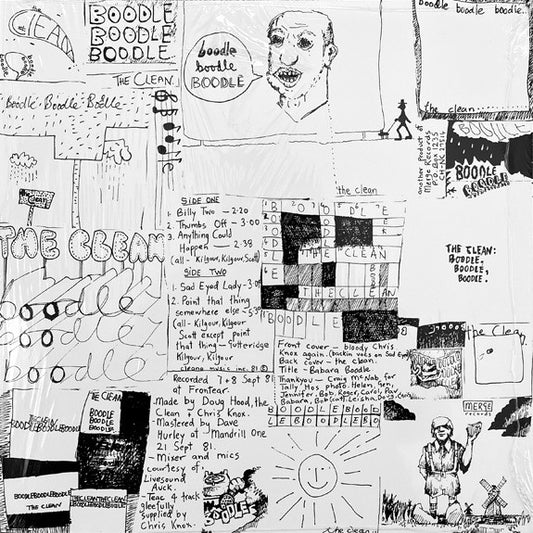 the
CLEAN
BOODLE
BOODLE
BOODLE
THE CLEAN.
Boodle. Boodle. Boodle
Boodle
the
Clean
THE CLEAN
boodle
boodle
BOODLE
the clean
boodle boodle boodle..
the clean
another Product of
Merge Records
P.O. Box 1235
CH NC 27514
BOODLE
BOODLE
THE CLEAN:
BOODLE,
BOODLE,
BOODLE.
the Clean
SIDE ONE
1. Billy Two - 2·20
2. Thumbs Off - 3·00
3. Anything Could
Happen - 2·38
(all - Kilgour, Kilgour, Scott)
SIDE TWO
1. Sad Eyed Lady - 3·0
2. Point that thing
somewhere else - 5
(all - Kilgour, Kilgour
Scott except point
that thing - Gutteridge
Kilgour, Kilgour
cleano music inc. 81 ©
BOODLE
THE CLEAN
THE CLEAN
BOODLE
Front cover - bloody Chris
Knox again. (backin vocs on Sad Eyed
Back cover - the clean.
Title - Babara Boodle
Thankyou - Craig McNab for
Tally Hos photo. Helen, Gen,
Jennifer, Bob, Roger, Carol, Paul,
Babara, Bob (cat), Leisha, Doug, Chris
BOODLEBOOD
LEBOODLEBO
Recorded 7+8 Sept 81
at Frontear
-Made by Doug Hood, the
Clean + Chris Knox.
-Mastered by Dave
Hurley at Mandrill One
21 Sept 81.
-Mixer and mics
courtesy of
Livesound
Auck.
-Teac 4 track
gleefully
supplied by
Chris Knox.
THE CLEAN
BOODLE
BOODLE
BOODLE
THE CLEAN
BOODLEBOODLEBOODLE
BOODLEBOODLEBOODLE
THE CLEAN
THECLEANTHECLEAN
BOODLEBOODLEBOODLE
BOODLE
MERGE
records
the clean